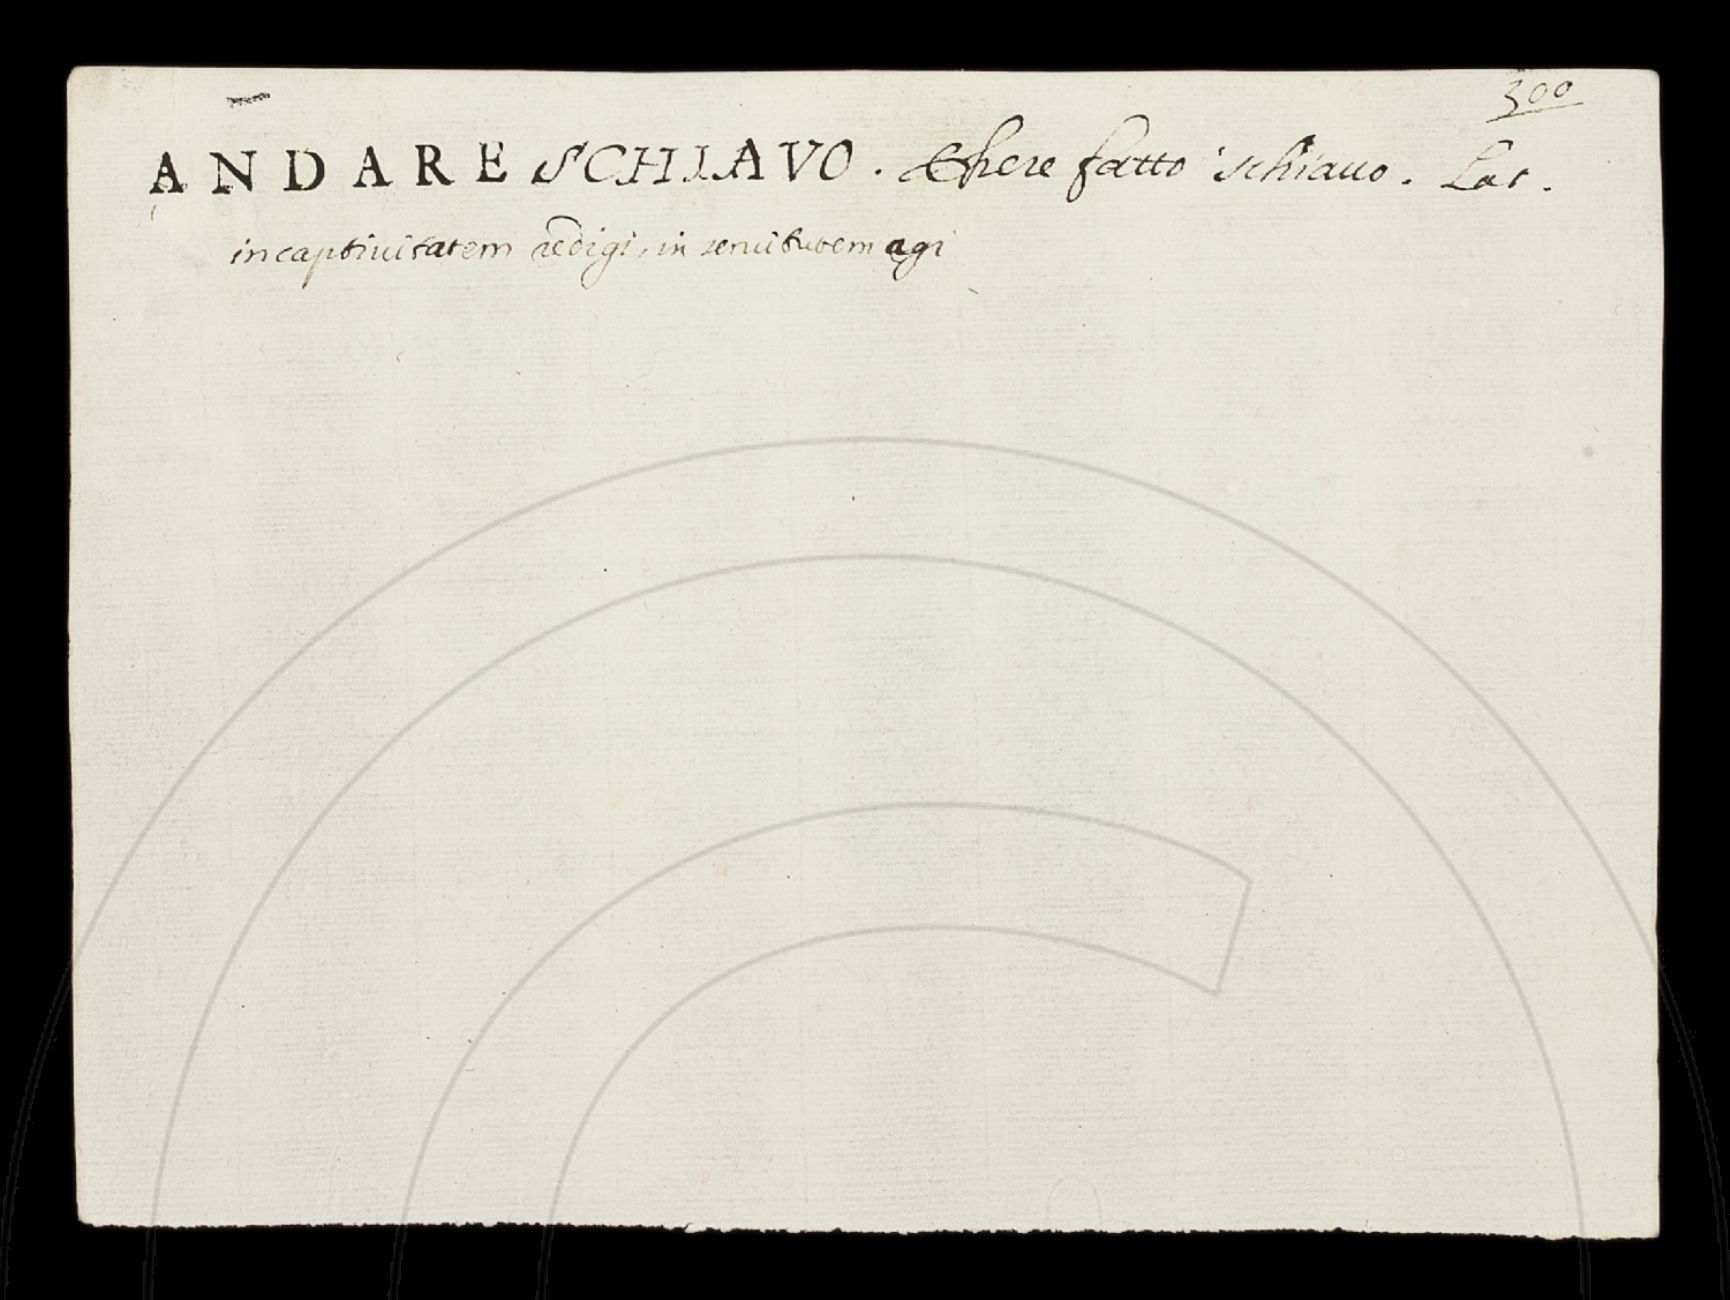 300
ANDARE SCHIAVO. Eshere fatto schiauo. Lat.
in captiuitatem redigi, in seruitutem agi